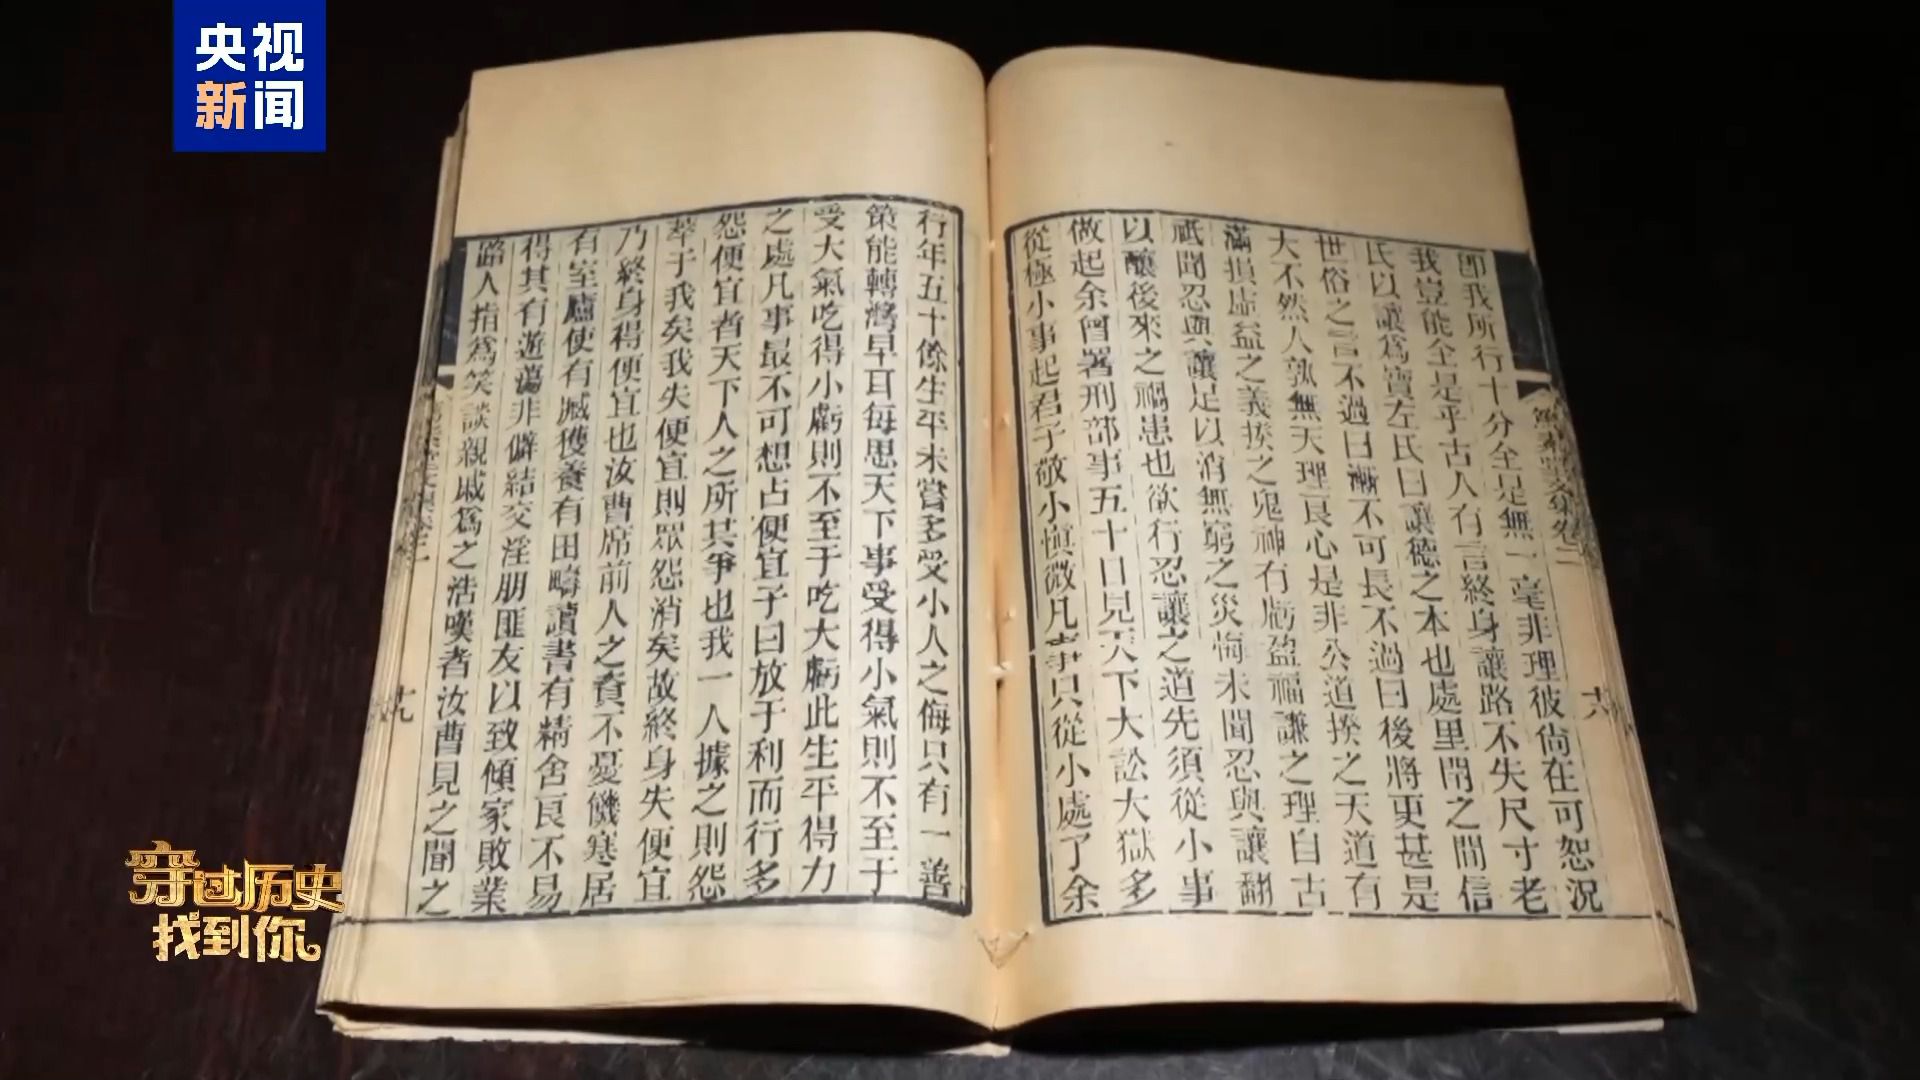 央视
新闻
卽我所行十分全是無一毫非理彼尙在可恕況
我豈能全是乎古人有言終身讓路不失尺寸老
氏以讓爲寶左氏曰讓德之本也處里閈之間信
世俗之言不過曰漸不可長不過曰後將更甚是
大不然人孰無天理良心是非公道揆之天道有
滿損虛益之義揆之鬼神有虧盈福謙之理自古
祗聞忍與讓足以消無窮之災悔未聞忍與讓翻
以釀後來之禍患也欲行忍讓之道先須從小事
做起余曾署刑部事五十日見天下大訟大獄多
從極小事起君子敬小慎微凡事只從小處了余
行年五十餘生平未嘗多受小人之侮只有一善
策能轉灣早耳每思天下事受得小氣則不至于
受大氣吃得小虧則不至于吃大虧此生平得力
之處凡事最不可想占便宜子曰放于利而行多
怨便宜者天下人之所共爭也我一人據之則怨
萃于我矣我失便宜則眾怨消矣故終身失便宜
乃終身得便宜也汝曹席前人之資不憂饑寒居
有室廬使有臧獲養有田疇讀書有精舍良不易
得其有遊蕩非僻結交淫朋匪友以致傾家敗業
路人指爲笑談親戚爲之浩嘆者汝曹見之聞之
十九
穿过历史
找到你